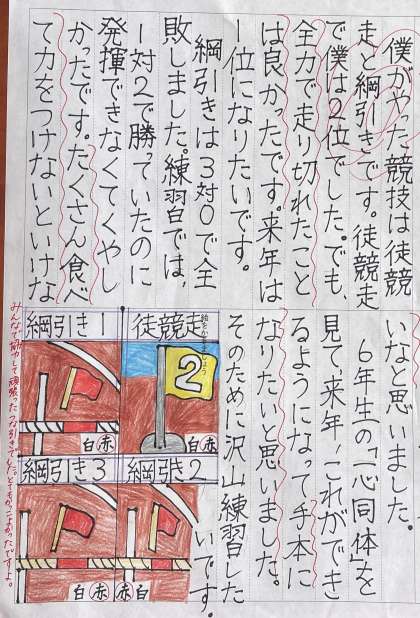 僕がやった競技は徒競
走と綱引きです。徒競走
で僕は2位でした。でも、
全力で走り切れたこと
は良かったです。来年は
1位になりたいです。
綱引きは3対0で全
敗しました。練習では、
1対2で勝っていたのに
発揮できなくてくやし
かったです。たくさん食べ
て力をつけないといけな
いなと思いました。
6年生の「一心同体」を
見て、来年これができ
るようになって手本に
なりたいと思いました。
そのために沢山練習した
いです。
徒競走
2
白赤
綱引き1
白赤
綱引き2
赤白
綱引き3
白赤
みんなで協力して頑張ったつな引きでした。とてもかっこよかったですよ。